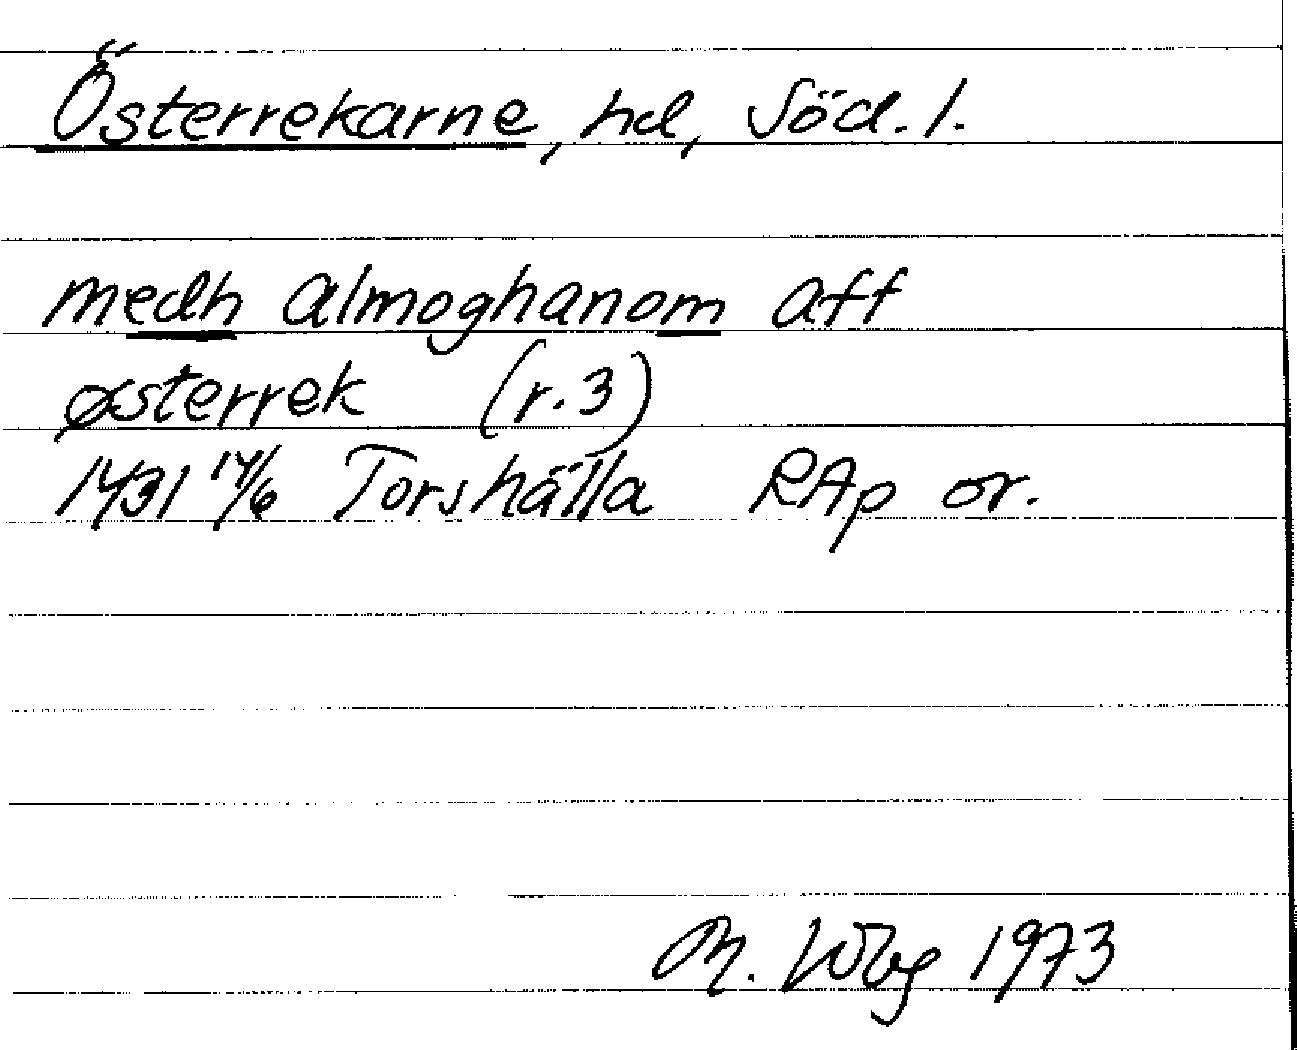 Österrekarne, hd, Söd. l.
medh almoghanom aff
østerrek (r. 3)
1431 14/6 Torshälla RAp or.
M. 1973